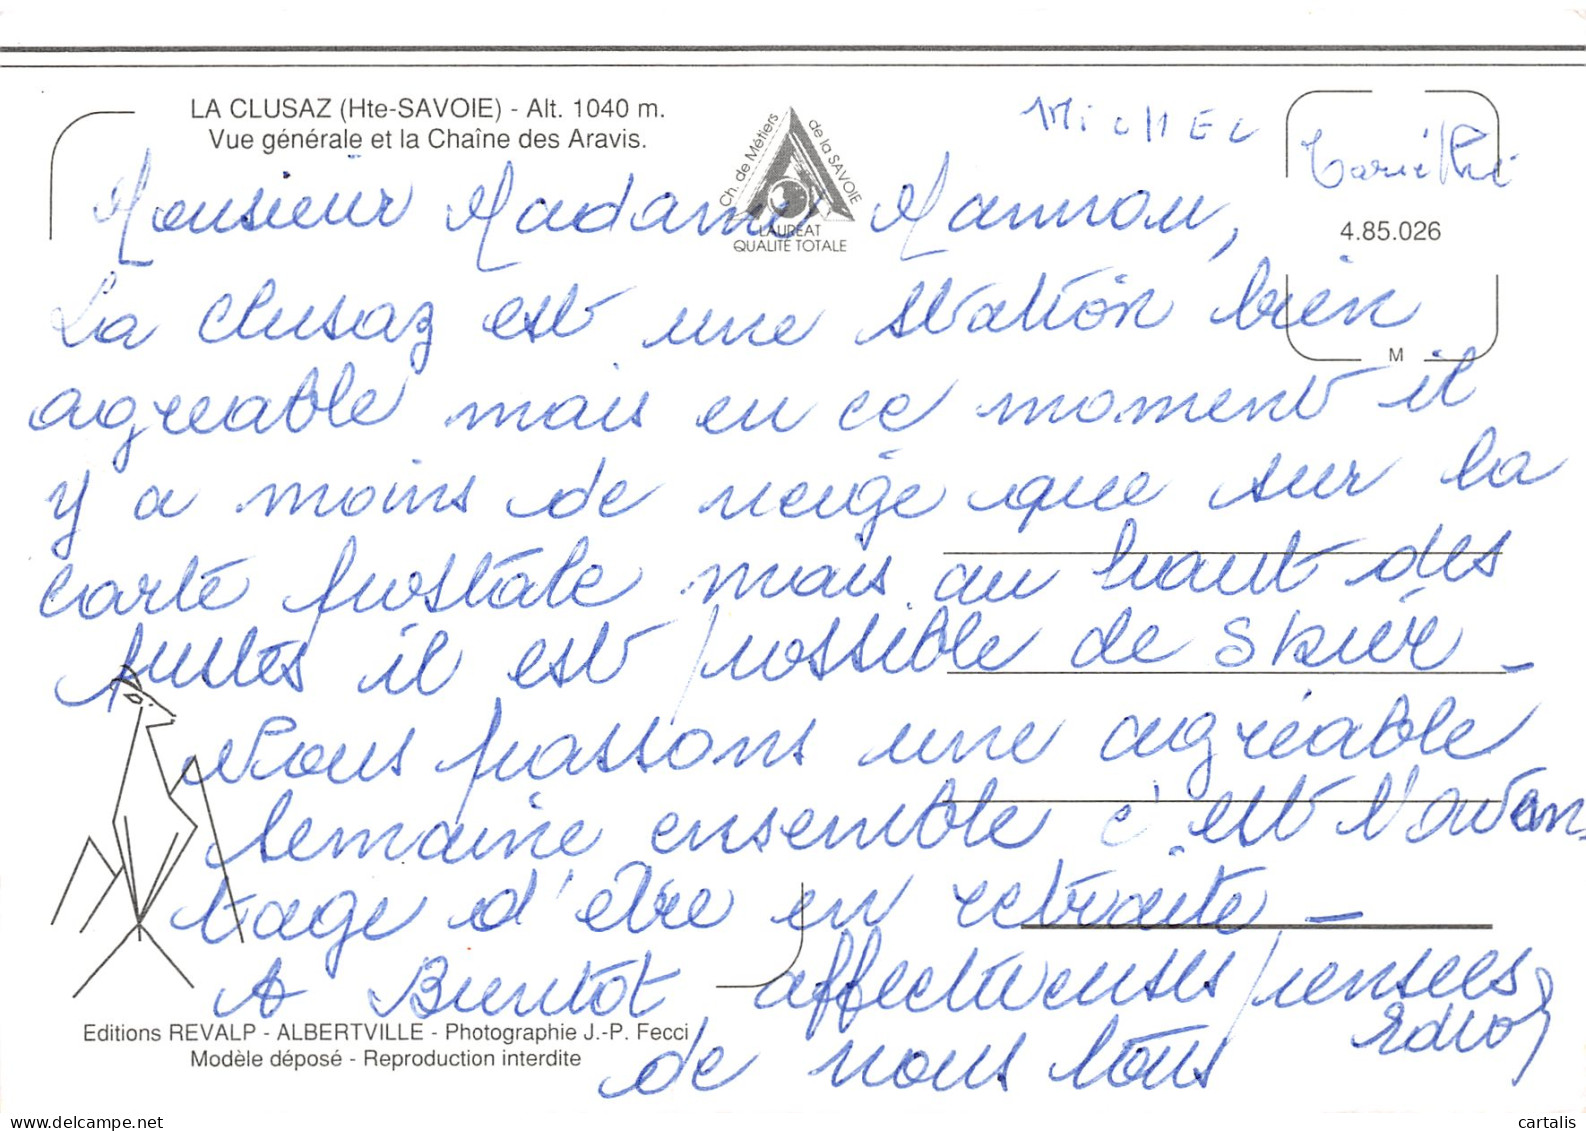 LA CLUSAZ (Hte-SAVOIE) - Alt. 1040 m.
Vue générale et la Chaîne des Aravis.
Ch. de Métiers de la SAVOIE
LAURÉAT
QUALITÉ TOTALE
MicHEL
4.85.026
M
Monsieur Madame Mannou,
La Clusaz est une station bien
agréable mais en ce moment il
y a moins de neige que sur la
carte postale mais au haut des
pistes il est possible de skier -
Nous passons une agréable
semaine ensemble c'est l'avan
tage d'être en retraite -
A Bientôt affectueuses pensées
de nous tous
Editions REVALP - ALBERTVILLE - Photographie J.-P. Fecci
Modèle déposé - Reproduction interdite
delcampe.net
cartalis